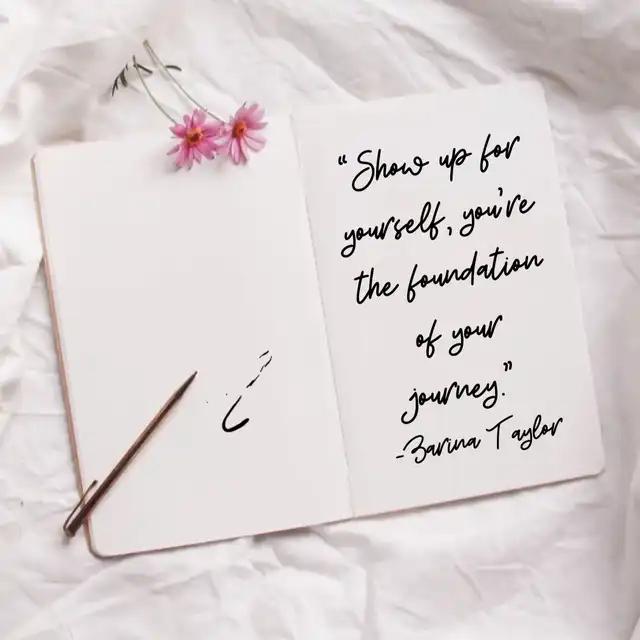 “Show up for
yourself, you're
the foundation
of your
journey.”
-Zarina Taylor